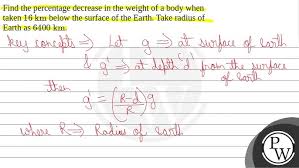 Find the percentage decrease in the weight of a body when
taken 16 km below the surface of the Earth. Take radius of
Earth as 6400 km.
key concepts ⇒ Let g ⇒ at surface of earth
& g' ⇒ at depth 'd' from the surface
of earth
then
g' = (R-d/R) g
where R ⇒ Radius of earth
P
W